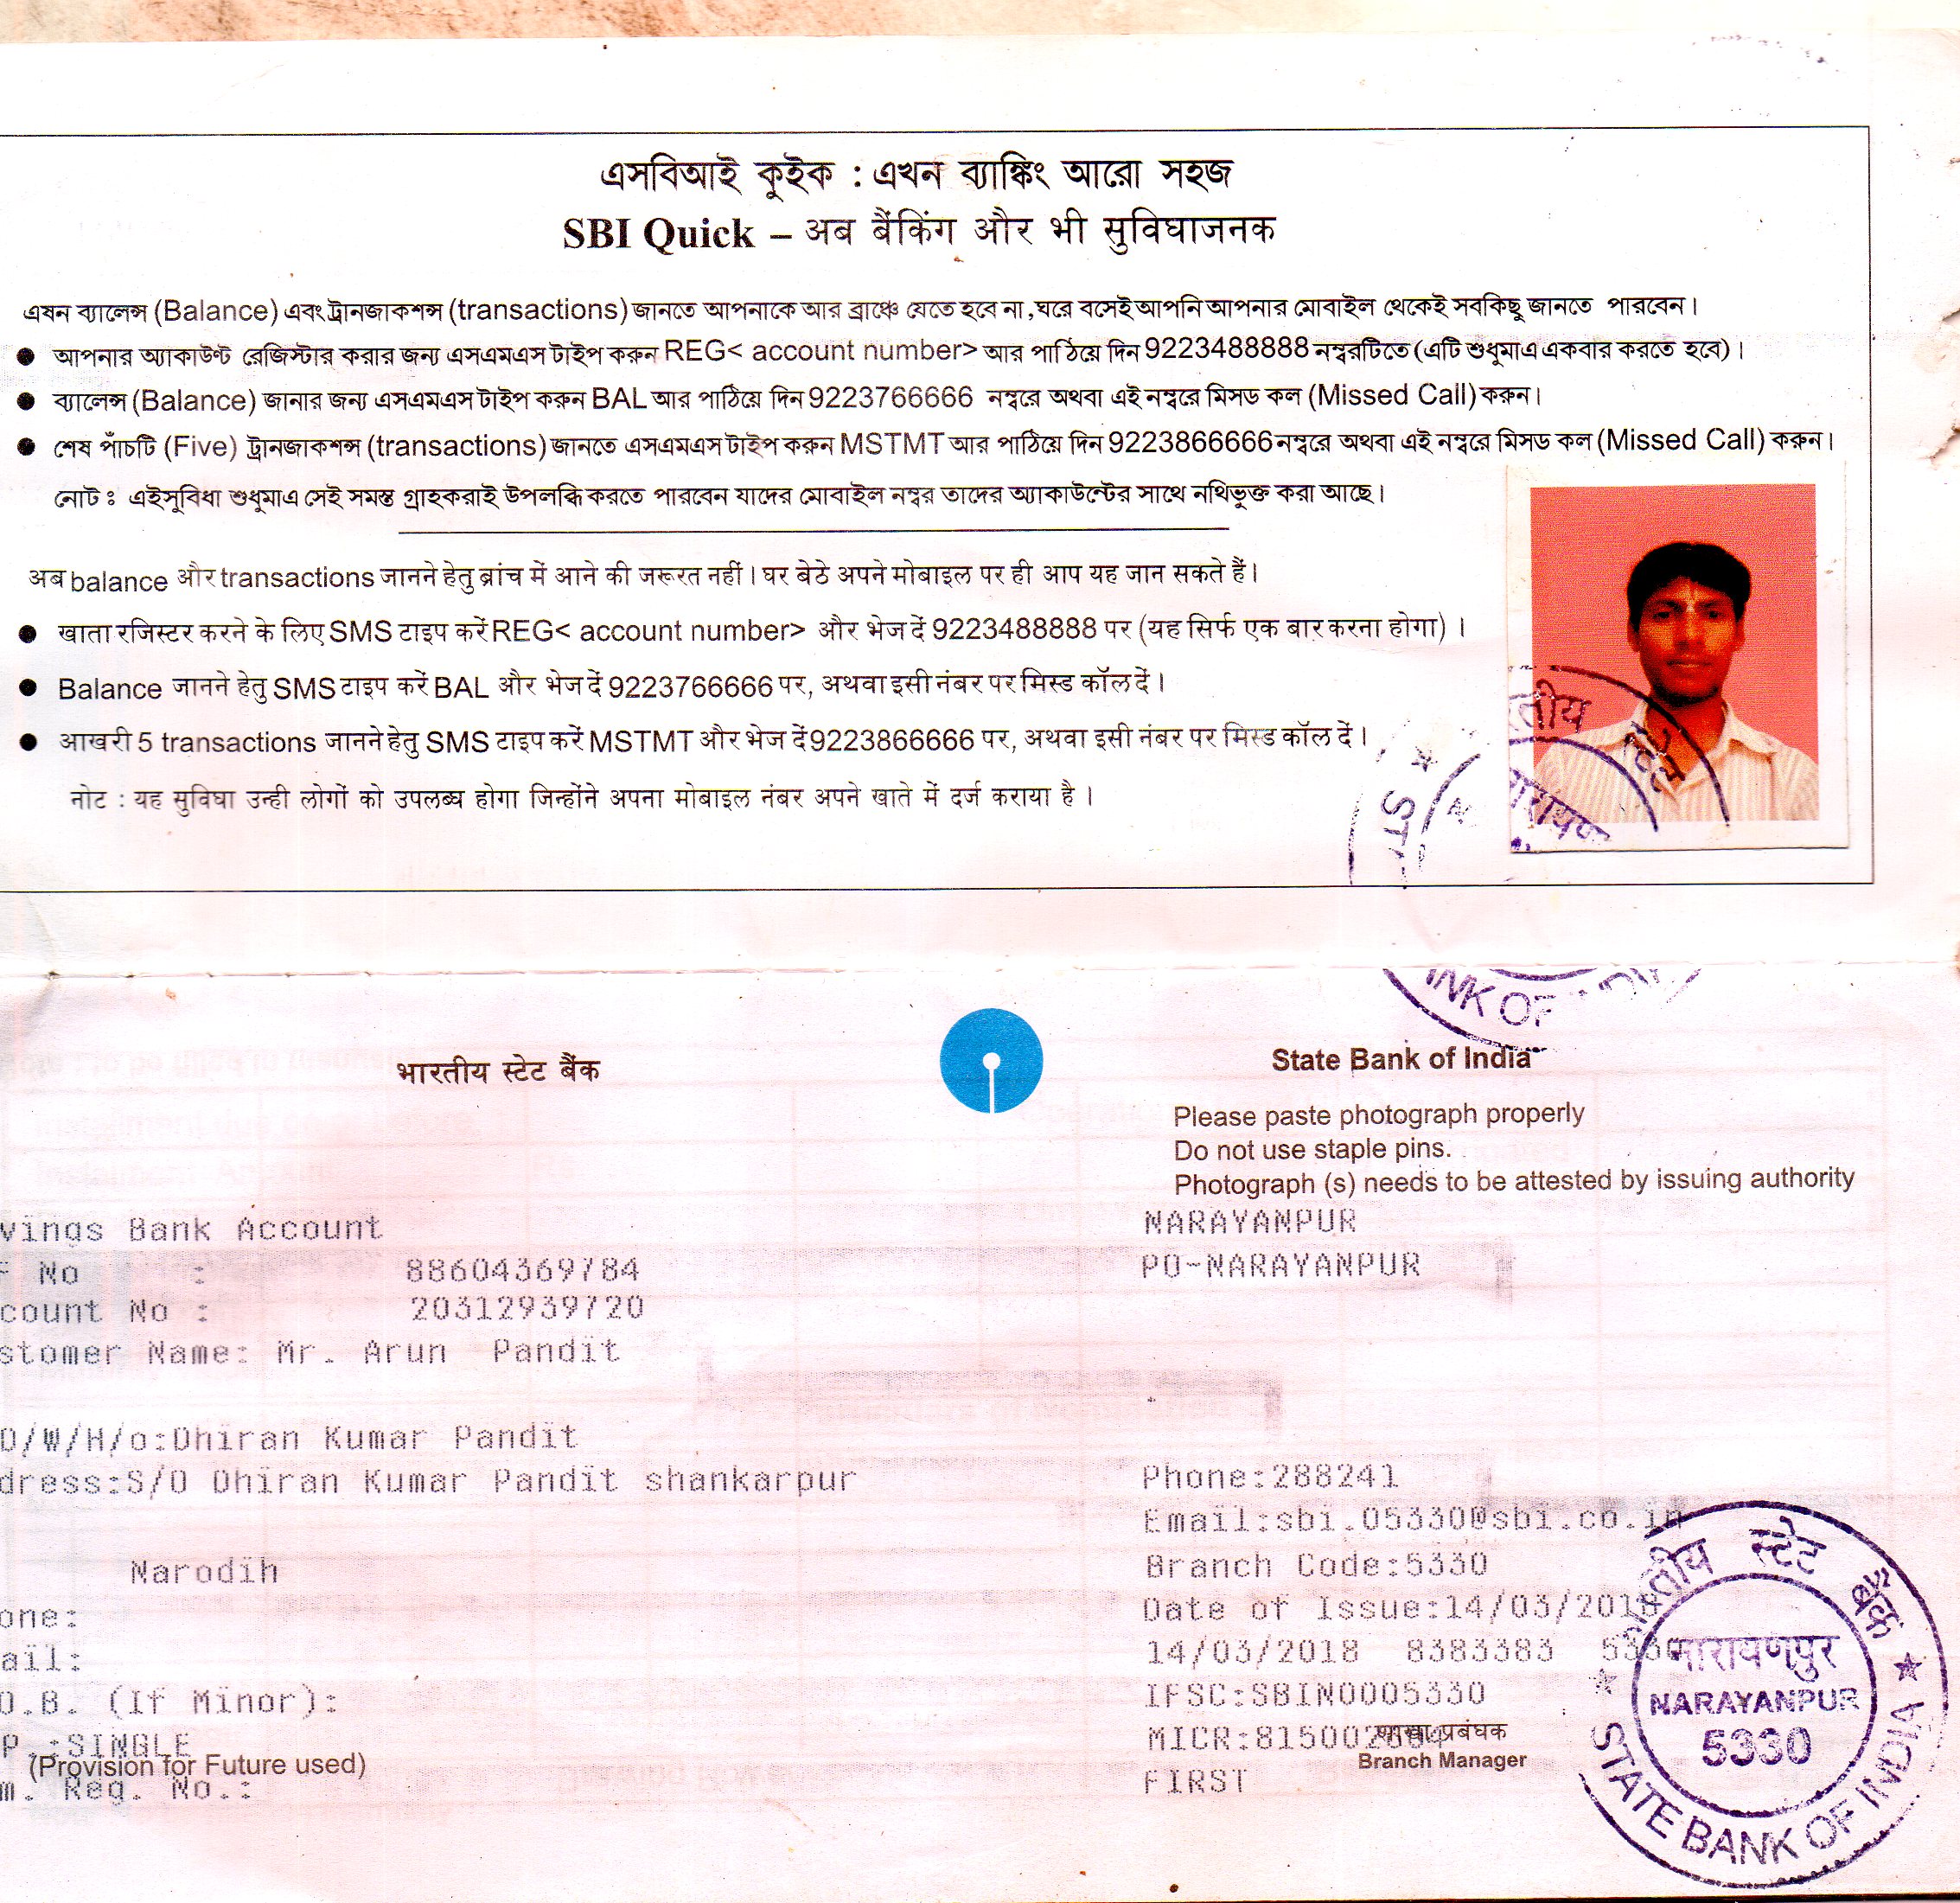 এসবিআই কুইক : এখন ব্যাঙ্কিং আরো সহজ
SBI Quick – अब बैंकिंग और भी सुविधाजनक
এষন ব্যালেন্স (Balance) এবং ট্রানজাকশন্স (transactions) জানতে আপনাকে আর ব্রাঞ্চে যেতে হবে না, ঘরে বসেই আপনি আপনার মোবাইল থেকেই সবকিছু জানতে পারবেন।
● আপনার অ্যাকাউন্ট রেজিস্টার করার জন্য এসএমএস টাইপ করুন REG< account number> আর পাঠিয়ে দিন 9223488888 নম্বরটিতে (এটি শুধুমাএ একবার করতে হবে)।
● ব্যালেন্স (Balance) জানার জন্য এসএমএস টাইপ করুন BAL আর পাঠিয়ে দিন 9223766666 নম্বরে অথবা এই নম্বরে মিসড কল (Missed Call) করুন।
● শেষ পাঁচটি (Five) ট্রানজাকশন্স (transactions) জানতে এসএমএস টাইপ করুন MSTMT আর পাঠিয়ে দিন 9223866666 নম্বরে অথবা এই নম্বরে মিসড কল (Missed Call) করুন।
নোট : এইসুবিধা শুধুমাএ সেই সমস্ত গ্রাহকরাই উপলব্ধি করতে পারবেন যাদের মোবাইল নম্বর তাদের অ্যাকাউন্টের সাথে নথিভুক্ত করা আছে।
अब balance और transactions जानने हेतु ब्रांच में आने की जरूरत नहीं। घर बेठे अपने मोबाइल पर ही आप यह जान सकते हैं।
● खाता रजिस्टर करने के लिए SMS टाइप करें REG< account number> और भेज दें 9223488888 पर (यह सिर्फ एक बार करना होगा) ।
● Balance जानने हेतु SMS टाइप करें BAL और भेज दें 9223766666 पर, अथवा इसी नंबर पर मिस्ड कॉल दें।
● आखरी 5 transactions जानने हेतु SMS टाइप करें MSTMT और भेज दें 9223866666 पर, अथवा इसी नंबर पर मिस्ड कॉल दें।
नोट : यह सुविधा उन्ही लोगों को उपलब्ध होगा जिन्होंने अपना मोबाइल नंबर अपने खाते में दर्ज कराया है ।
तीय स्टेट
नारायण
ST
NK OF
भारतीय स्टेट बैंक
State Bank of India
Please paste photograph properly
Do not use staple pins.
Photograph (s) needs to be attested by issuing authority
vings Bank Account
NARAYANPUR
F No : 88604369784
PO-NARAYANPUR
count No : 20312939720
stomer Name: Mr. Arun Pandit
D/W/H/o:Dhiran Kumar Pandit
dress:S/O Dhiran Kumar Pandit shankarpur
Phone:288241
Email:sbi.05330@sbi.co.in
Narodih
Branch Code:5330
one:
Date of Issue:14/03/2018
ail:
14/03/2018 8383383 5330
O.B. (If Minor):
IFSC:SBIN0005330
P.:SINGLE
MICR:815002
शाखा प्रबंधक
(Provision for Future used)
Branch Manager
m. Reg. No.:
FIRST
भारतीय स्टेट बैंक
नारायणपुर
NARAYANPUR
5330
STATE BANK OF INDIA